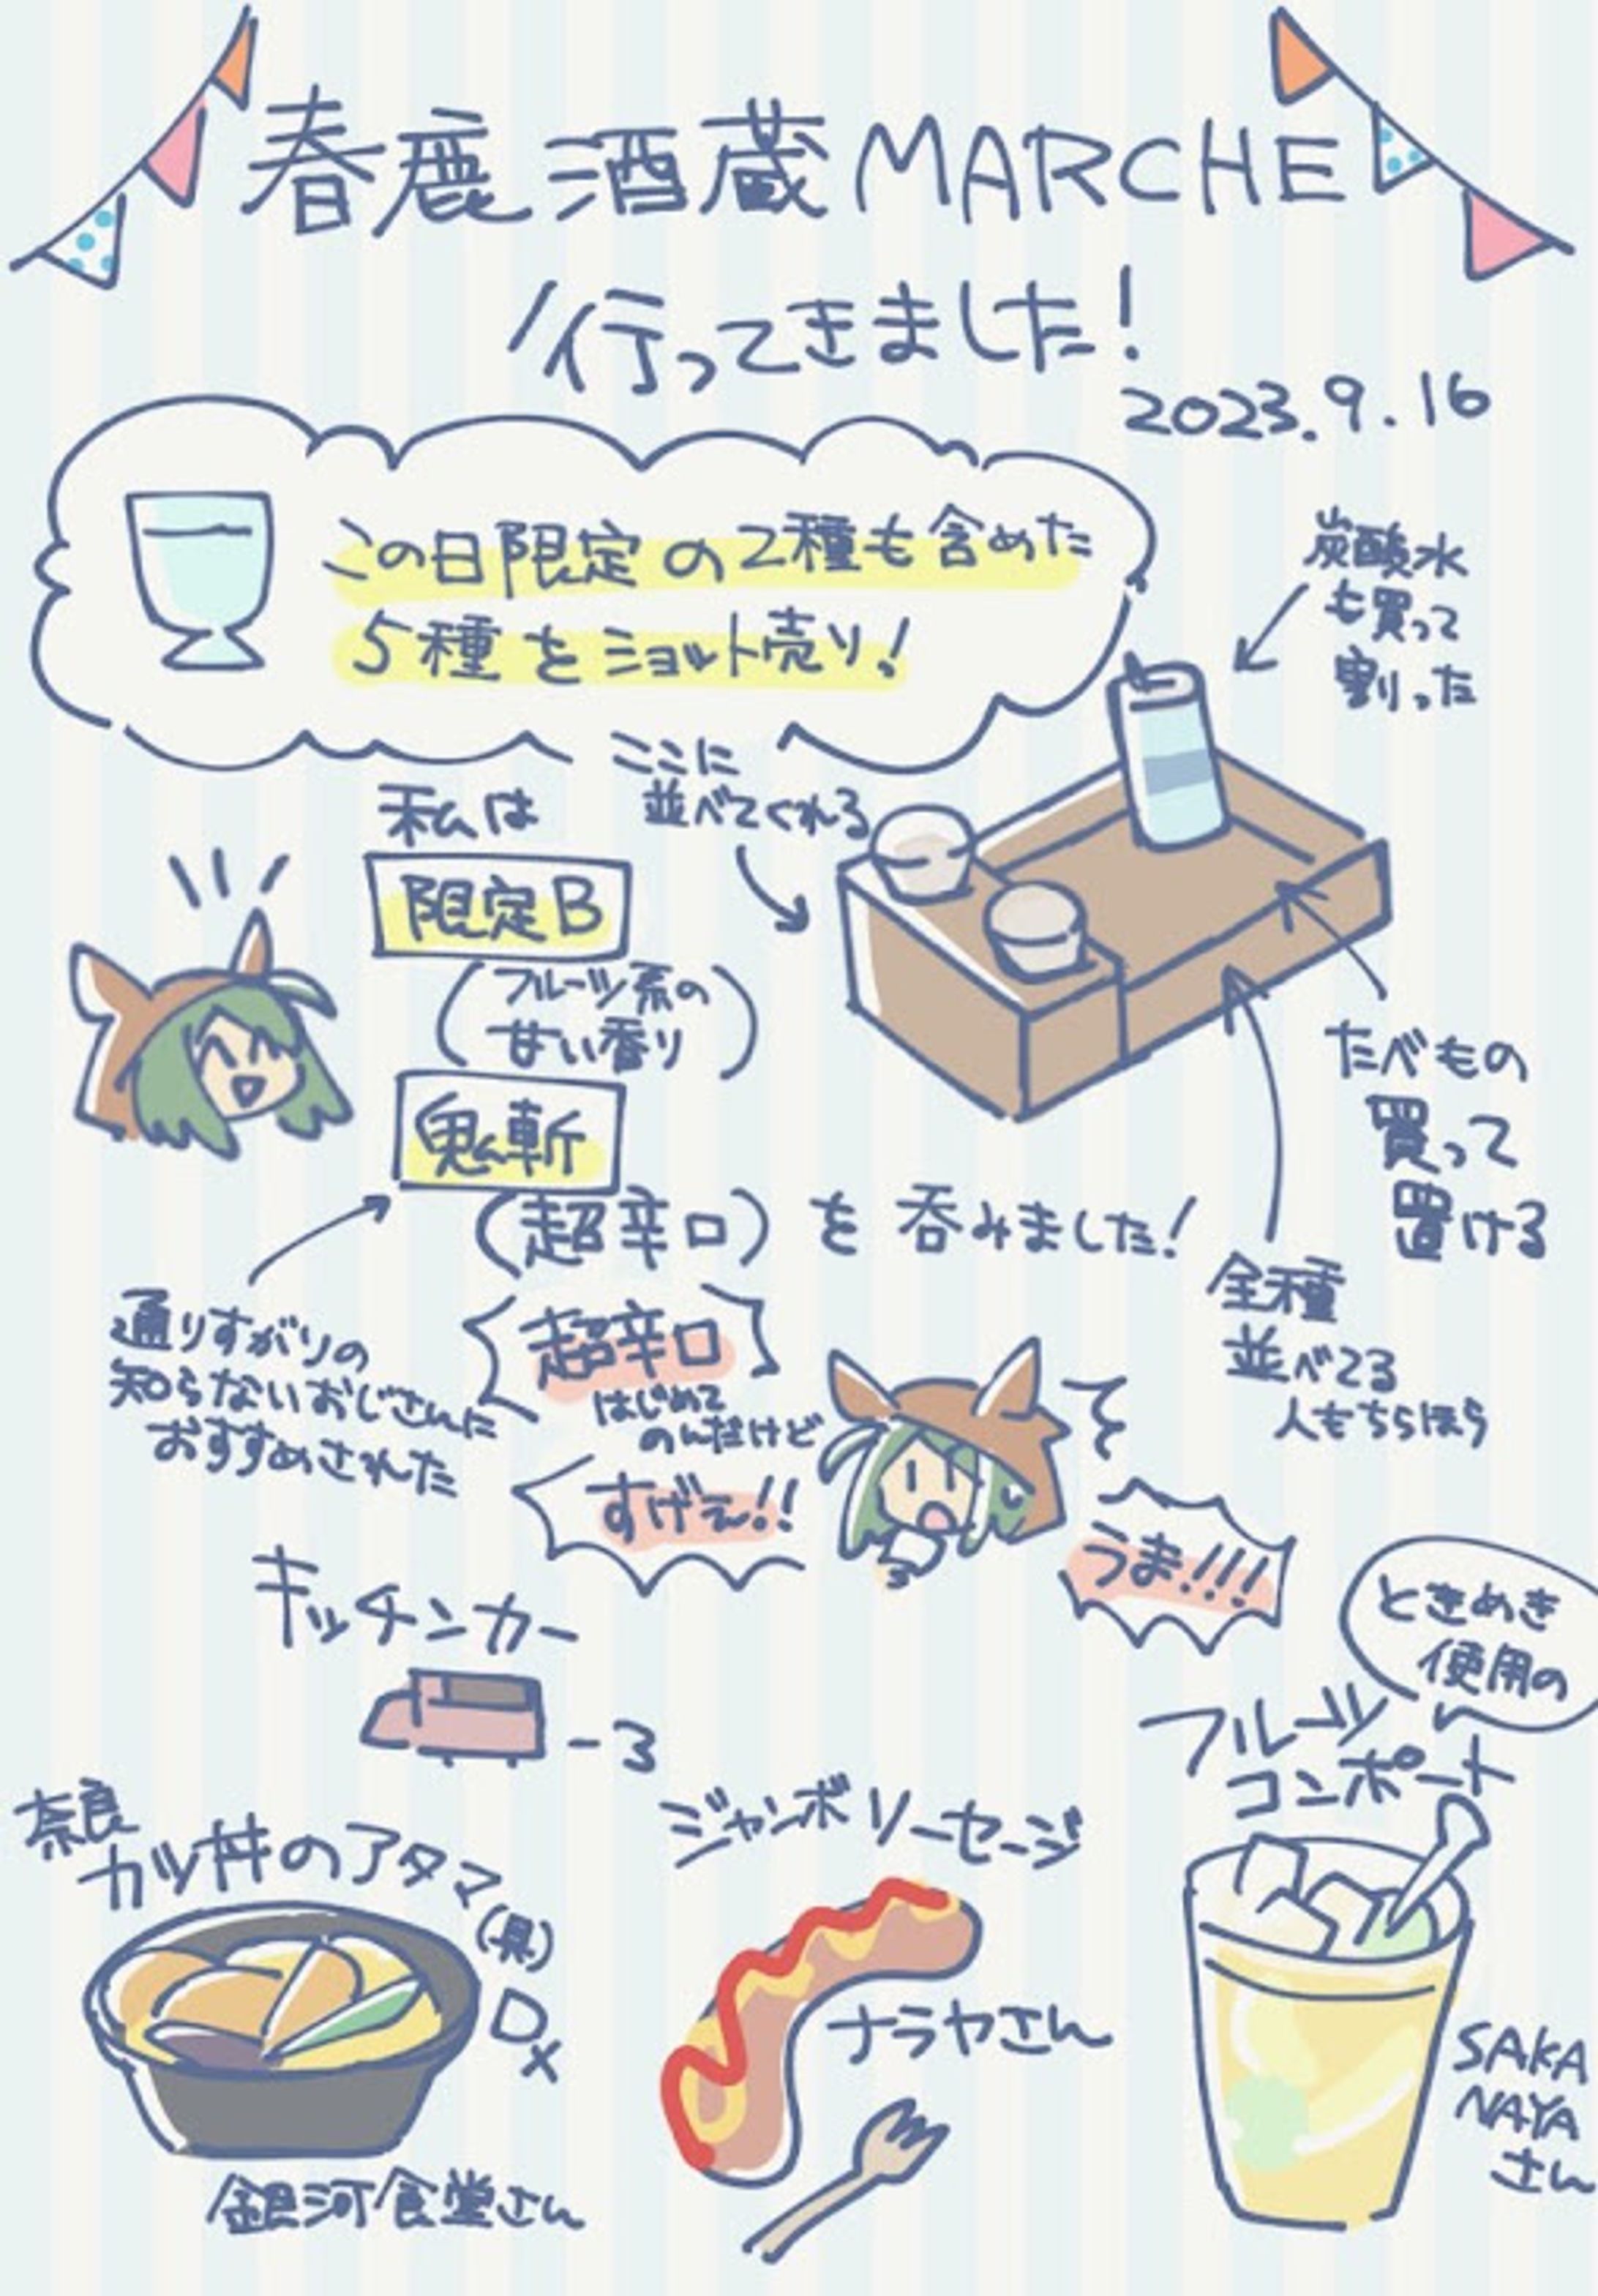 春鹿 酒蔵MARCHE
行ってきました！
2023.9.16
この日限定の2種も含めた
5種をショット売り！
炭酸水
も買って
割った
ここに
並べてくれる
私は
限定B
(フルーツ系の
甘い香り)
鬼斬
(超辛口)を呑みました！
たべもの
買って
置ける
全種
並べてる
人もちらほら
通りすがりの
知らないおじさんに
おすすめされた
超辛口
はじめて
のんだけど
すげえ!!
うま!!!
キッチンカー
ときめき
使用の
フルーツ
コンポート
奈良
カツ丼のアタマ(具)
ジャンボソーセージ
ナラヤさん
SAKA
NAYA
さん
銀河食堂さん